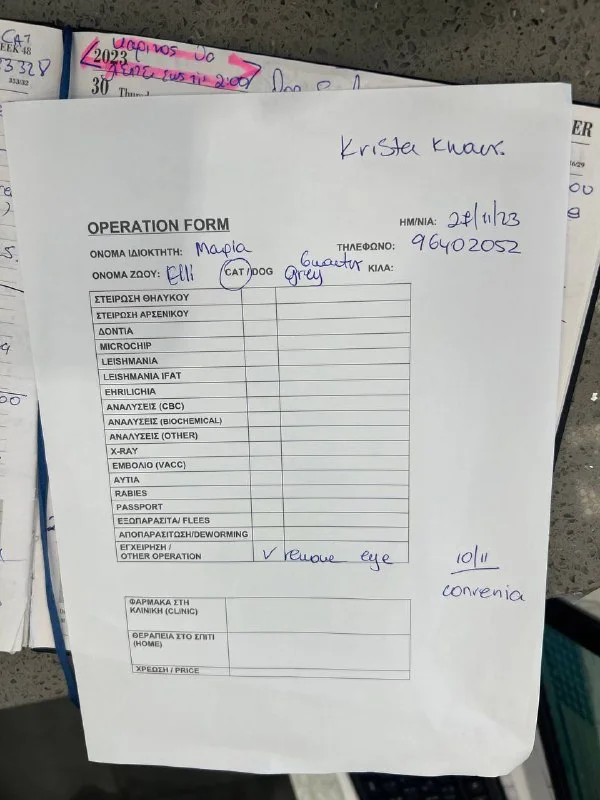 CAT
EEK 48
33328
353/32
2023
μαρινος θα
λειπει εως τις 2:00
30 Thursd
ER
16/29
Krista Knaus.
OPERATION FORM
ΗΜ/ΝΙΑ: 27/11/23
ΟΝΟΜΑ ΙΔΙΟΚΤΗΤΗ: Μαρία
ΤΗΛΕΦΩΝΟ: 96402052
ΟΝΟΜΑ ΖΩΟΥ: Elli CAT / DOG grey 6μηστω ΚΙΛΑ:
ΣΤΕΙΡΩΣΗ ΘΗΛΥΚΟΥ
ΣΤΕΙΡΩΣΗ ΑΡΣΕΝΙΚΟΥ
ΔΟΝΤΙΑ
MICROCHIP
LEISHMANIA
LEISHMANIA IFAT
EHRILICHIA
ΑΝΑΛΥΣΕΙΣ (CBC)
ΑΝΑΛΥΣΕΙΣ (BIOCHEMICAL)
ΑΝΑΛΥΣΕΙΣ (OTHER)
X-RAY
ΕΜΒΟΛΙΟ (VACC)
ΑΥΤΙΑ
RABIES
PASSPORT
ΕΞΩΠΑΡΑΣΙΤΑ/ FLEES
ΑΠΟΠΑΡΑΣΙΤΩΣΗ/DEWORMING
ΕΓΧΕΙΡΗΣΗ /
OTHER OPERATION v remove eye
10/11
convenia
ΦΑΡΜΑΚΑ ΣΤΗ
ΚΛΙΝΙΚΗ (CLINIC)
ΘΕΡΑΠΕΙΑ ΣΤΟ ΣΠΙΤΙ
(HOME)
ΧΡΕΩΣΗ / PRICE